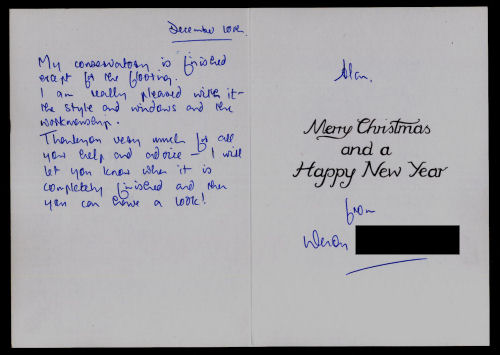 December
My conservatory is finished
except for the flooring.
I am really pleased with it -
the style and windows and the
workmanship.
Thankyou very much for all
your help and advice - I will
let you know when it is
completely finished and then
you can have a look!
Alan.
Merry Christmas
and a
Happy New Year
from